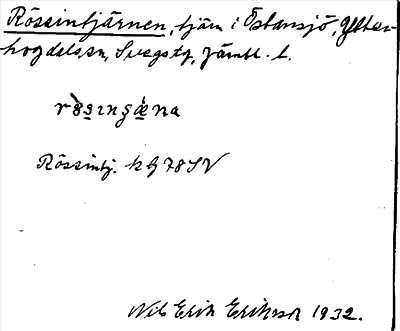 Rössintjärnen, tjärn i Östansjö, Ytter-
hogdals sn, Svegs tg, Jämtl. l.
Rössintj. k G 78 SV
Nils Erik Eriksson 1932.